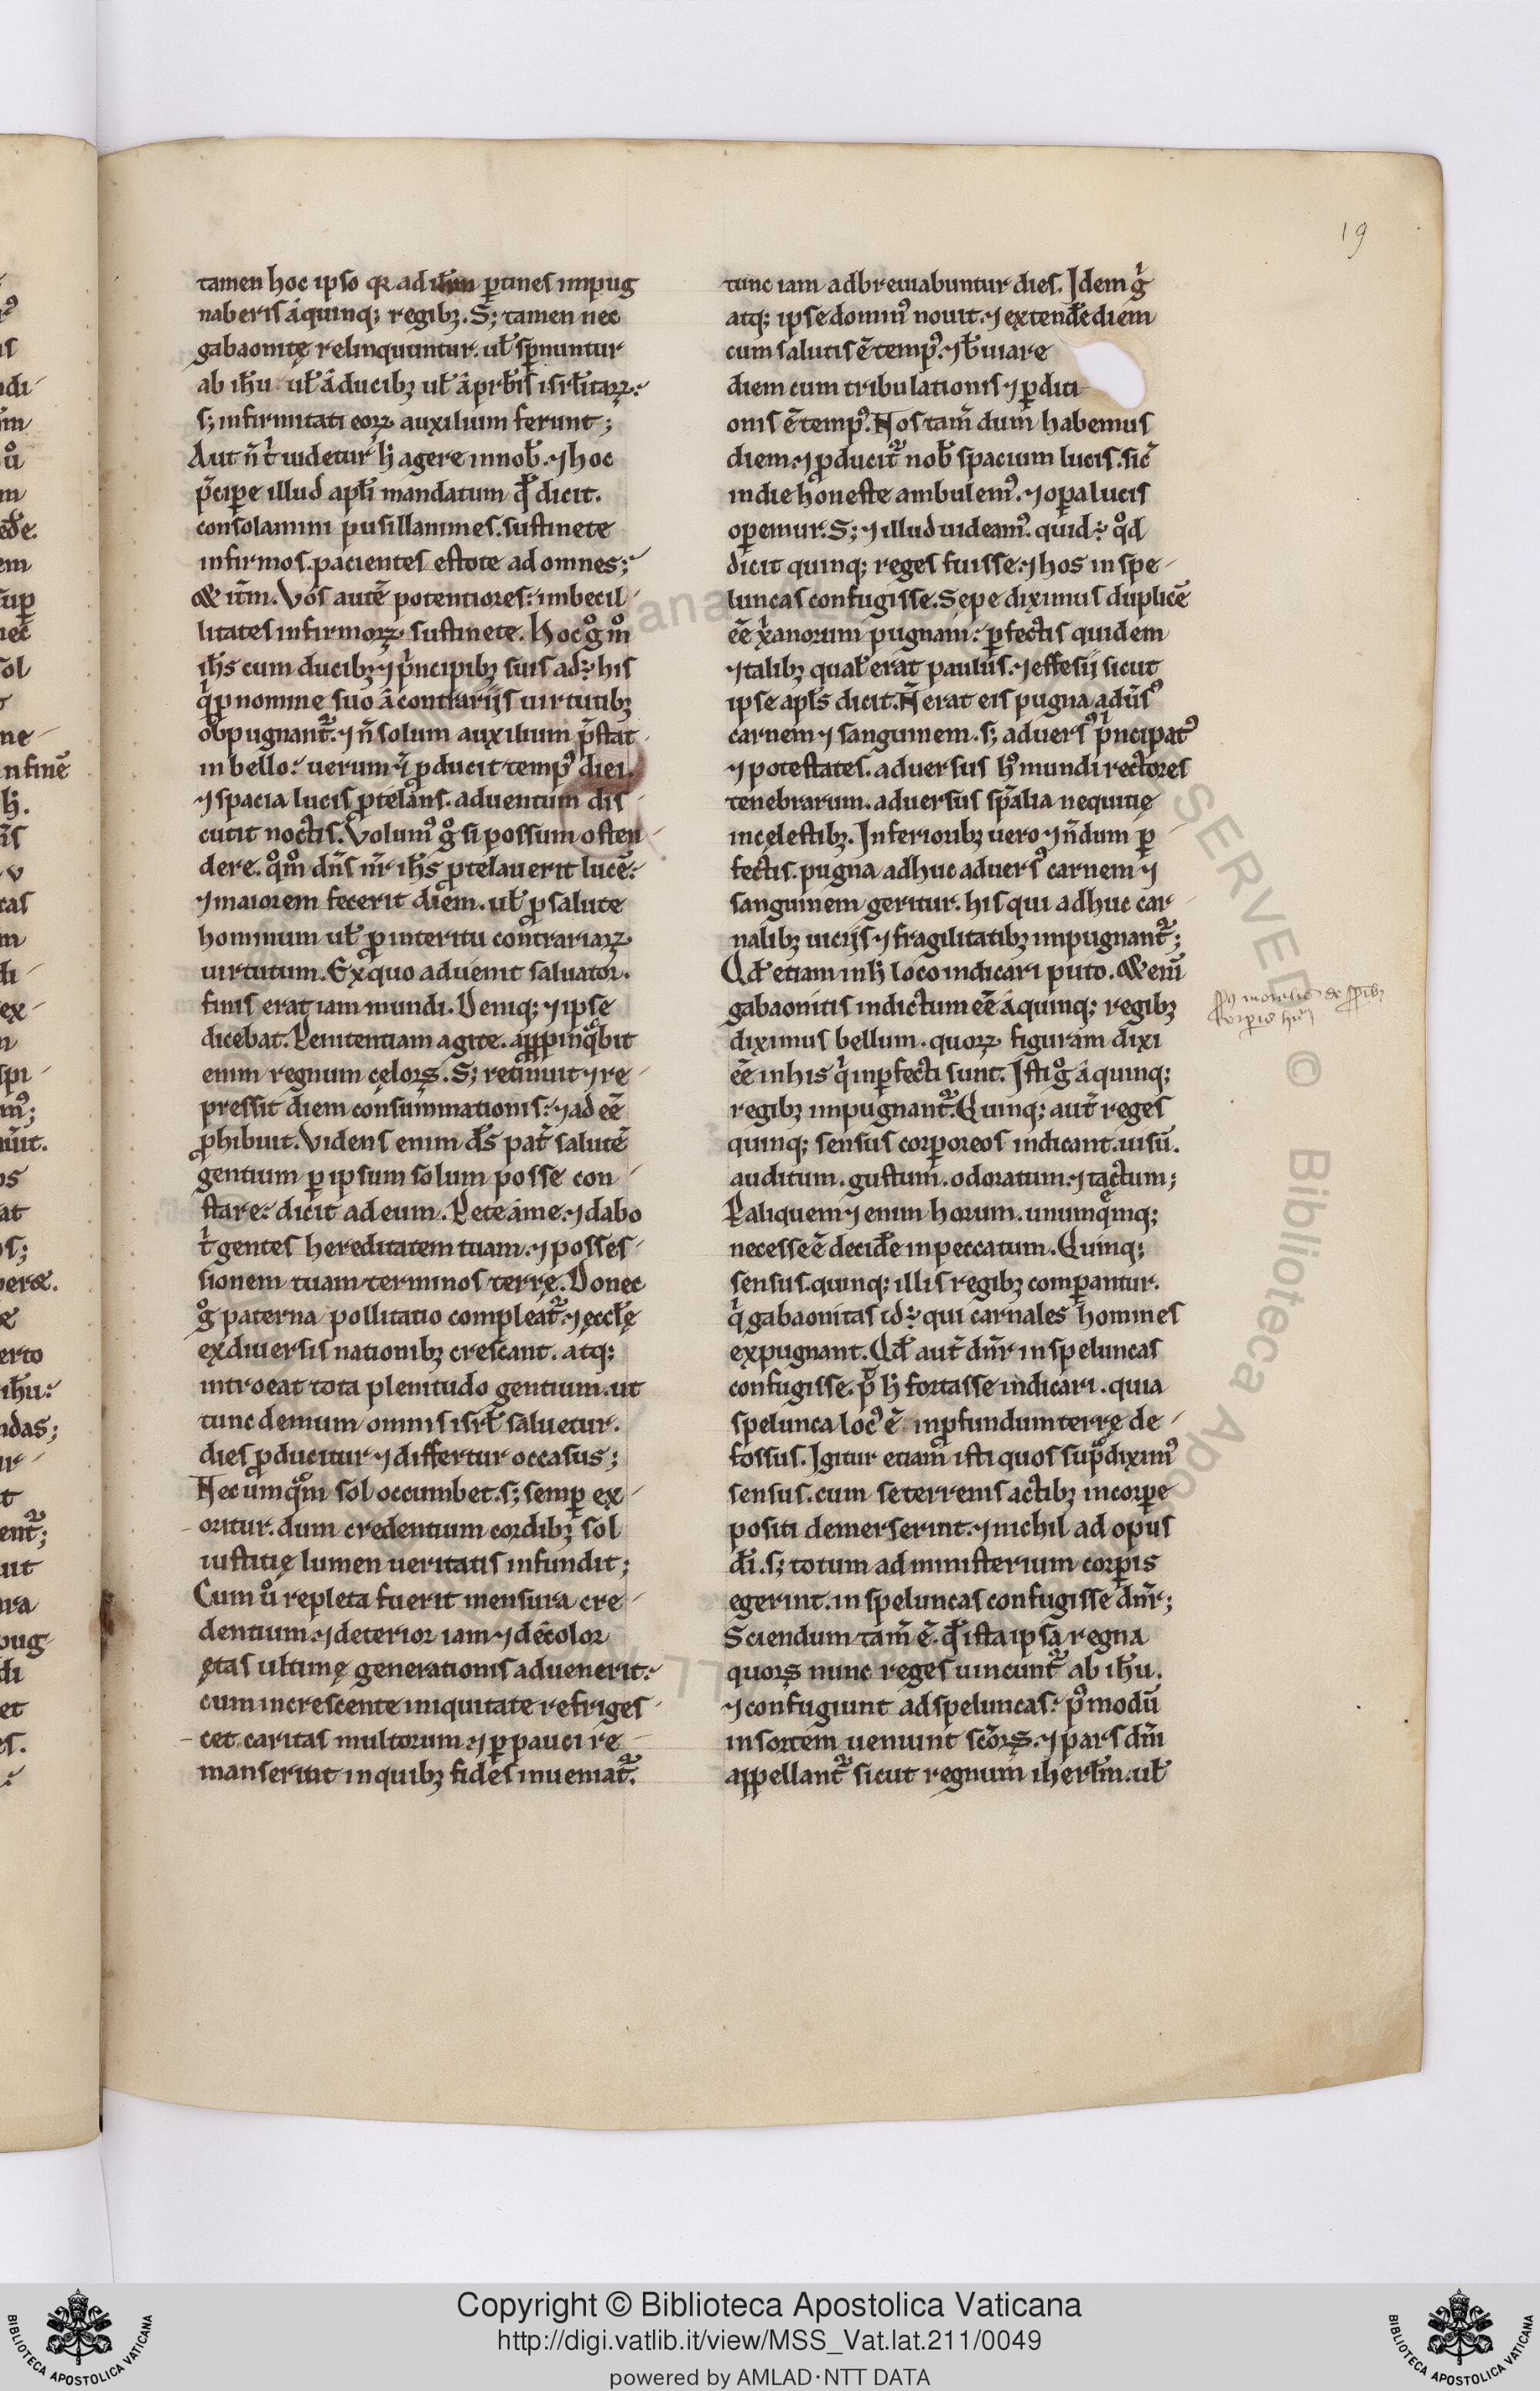 19
tamen hoc ipso q̇ ad ih̅m p̲tines impug
naberis á quinq; regibꝫ. S; tamen nec
gabaonitę relinquuntur. ul̅ sp̲nuntur
ab ih̅u ul̅ á ducibꝫ ul̅ á pr̅bis isrl̅itaꝝ:
s; infirmitati eoꝝ auxilium ferunt;
Aut n̅ t̅ uidetur h̅ agere in nob̅. ⁊ hoc
p̅cipe illud apl̅i mandatum qd̅ dicit.
consolamini pusillanimes. sustinete
infirmos. pacientes estote ad omnes;
& it̅m. Vos aute̅ potentiores: imbecil-
litates infirmoꝝ sustinete. Hoc gͦ mͦ
ih̅s cum ducibꝫ ⁊ pͥncipibꝫ suis adꝫ his
qͥ p̲ nomine suo á contrarijs uirtutibꝫ
obpugnant᷑. ⁊ n̅ solum auxilium p̅stat
in bello: uerum ⁊ ꝓducit tempꝰ diei.
⁊ spacia lucis ꝓtelans. aduentum dis-
cutit noctis. Volumꝰ gͦ si possum osten-
dere. qͦmͦ dn̅s nr̅ ih̅s ꝓtelauerit luce̅:
⁊ maiorem fecerit diem. ul̅ ꝓ salute
hominum ul̅ ꝓ interitu contrariaꝝ
uirtutum. Ex quo aduenit saluator.
finis erat iam mundi. Deniq; ⁊ ipse
dicebat. Penitentiam agite. appinqͣbit
enim regnum cęloꝝ. S; retinuit ⁊ re-
pressit diem consummationis: ⁊ adee̅
ꝓhibuit. Videns enim ds̅ pat̅ salute̅
gentium p̲ ipsum solum posse con-
stare: dicit ad eum. Pete á me. ⁊ dabo
t̅ gentes hereditatem tuam. ⁊ posses-
sionem tuam terminos terrę. Donec
gͦ paterna pollitatio compleat᷑. ⁊ ęccl̅ę
ex diuersis nationibꝫ crescant. atq;
introeat tota plenitudo gentium. ut
tunc demum omnis isrl̅ saluetur.
dies ꝓducitur ⁊ differtur occasus;
Nec umqͣm sol occumbet. s; semp̲ ex-
oritur. dum credentium cordibꝫ sol
iustitię lumen ueritatis infundit;
Cum uͦ repleta fuerit mensura cre-
dentium. ⁊ deterior iam ⁊ decolor
ętas ultimę generationis aduenerit:
cum increscente iniquitate refriges-
cet caritas multorum. ⁊ p̲pauci re-
manserint in quibꝫ fides inueniat᷑.
tunc iam adbreuiabuntur dies. Idem gͥ
atq; ipse dominꝰ nouit. ⁊ extende̅ diem
cum salutis e̅ tempꝰ. ⁊ b̅uiare
diem cum tribulationis ⁊ p̲diti-
onis e̅ tempꝰ. Nos tam̅ dum habemus
diem. ⁊ ꝓducit᷑ nob̅ spacium lucis. sic̅
in die honeste ambulemꝰ. ⁊ op̲a lucis
op̲emur. S; ⁊ illud uideamꝰ. quidꝫ qͦd
dicit quinq; reges fuisse. ⁊ hos in spe-
luncas confugisse. Sepe diximus duplice̅
ee̅ xͥanorum pugnam: p̲fectis quidem
⁊ talibꝫ qual̅ erat paulus. ⁊ effesij sicut
ipse apl̅s dicit. N̅ erat eis pugna adu̅sꝰ
carnem ⁊ sanguinem. s; aduersꝰ pͥncipatꝰ
⁊ potestates. aduersus hꝰ mundi rectores
tenebrarum. aduersus sp̅alia nequitię
in cęlestibꝫ. Inferioribꝫ uero ⁊ n̅dum p̲
fectis. pugna adhuc aduersꝰ carnem ⁊
sanguinem geritur. his qui adhuc car-
nalibꝫ uicijs ⁊ fragilitatibꝫ impugnant᷑;
Qd̅ etiam in h̅ loco indicari puto. & eni̅
gabaonitis indictum ee̅ á quinq; regibꝫ
diximus bellum. quoꝝ figuram dixi
ee̅ in his qͥ inp̲fecti sunt. Isti gͦ á quinq;
regibꝫ impugnant᷑. Quinq; aut̅ reges
quinq; sensus corporeos indicant. uisu̅.
auditum. gustum. odoratum. ⁊ tactum;
P̲ aliquem ⁊enim horum. unumqͤmq;
necesse e̅ decide̅ in peccatum. Quinq;
sensus. quinq; illis regibꝫ comp̲antur.
qͥ gabaonitas idꝫ qui carnales homines
expugnant. Qd̅ aut̅ dn̅r in speluncas
confugisse. pt̅ h̅ fortasse indicari. quia
spelunca locꝰ e̅ in ꝓfundum terrę de-
fossus. Igitur etiam isti quos supͣdiximꝰ
sensus. cum se terrenis actibꝫ in corp̲e
positi demerserint. ⁊ nichil ad opus
di̅. s; totum ad ministerium corp̲is
egerint. in speluncas confugisse dn̅r;
Sciendum tam̅ e̅. qd̅ ista ipsa regna
quoꝝ nunc reges uincunt᷑ ab ih̅u.
⁊ confugiunt ad speluncas: pꝰmodu̅
in sortem ueniunt sc̅oꝝ. ⁊ pars dn̅i
appellant᷑ sicut regnum iherl̅m. ul̅
Copyright © Biblioteca Apostolica Vaticana
http://digi.vatlib.it/view/MSS_Vat.lat.211/0049
powered by AMLAD·NTT DATA
BIBLIOTECA APOSTOLICA VATICANA
BIBLIOTECA APOSTOLICA VATICANA